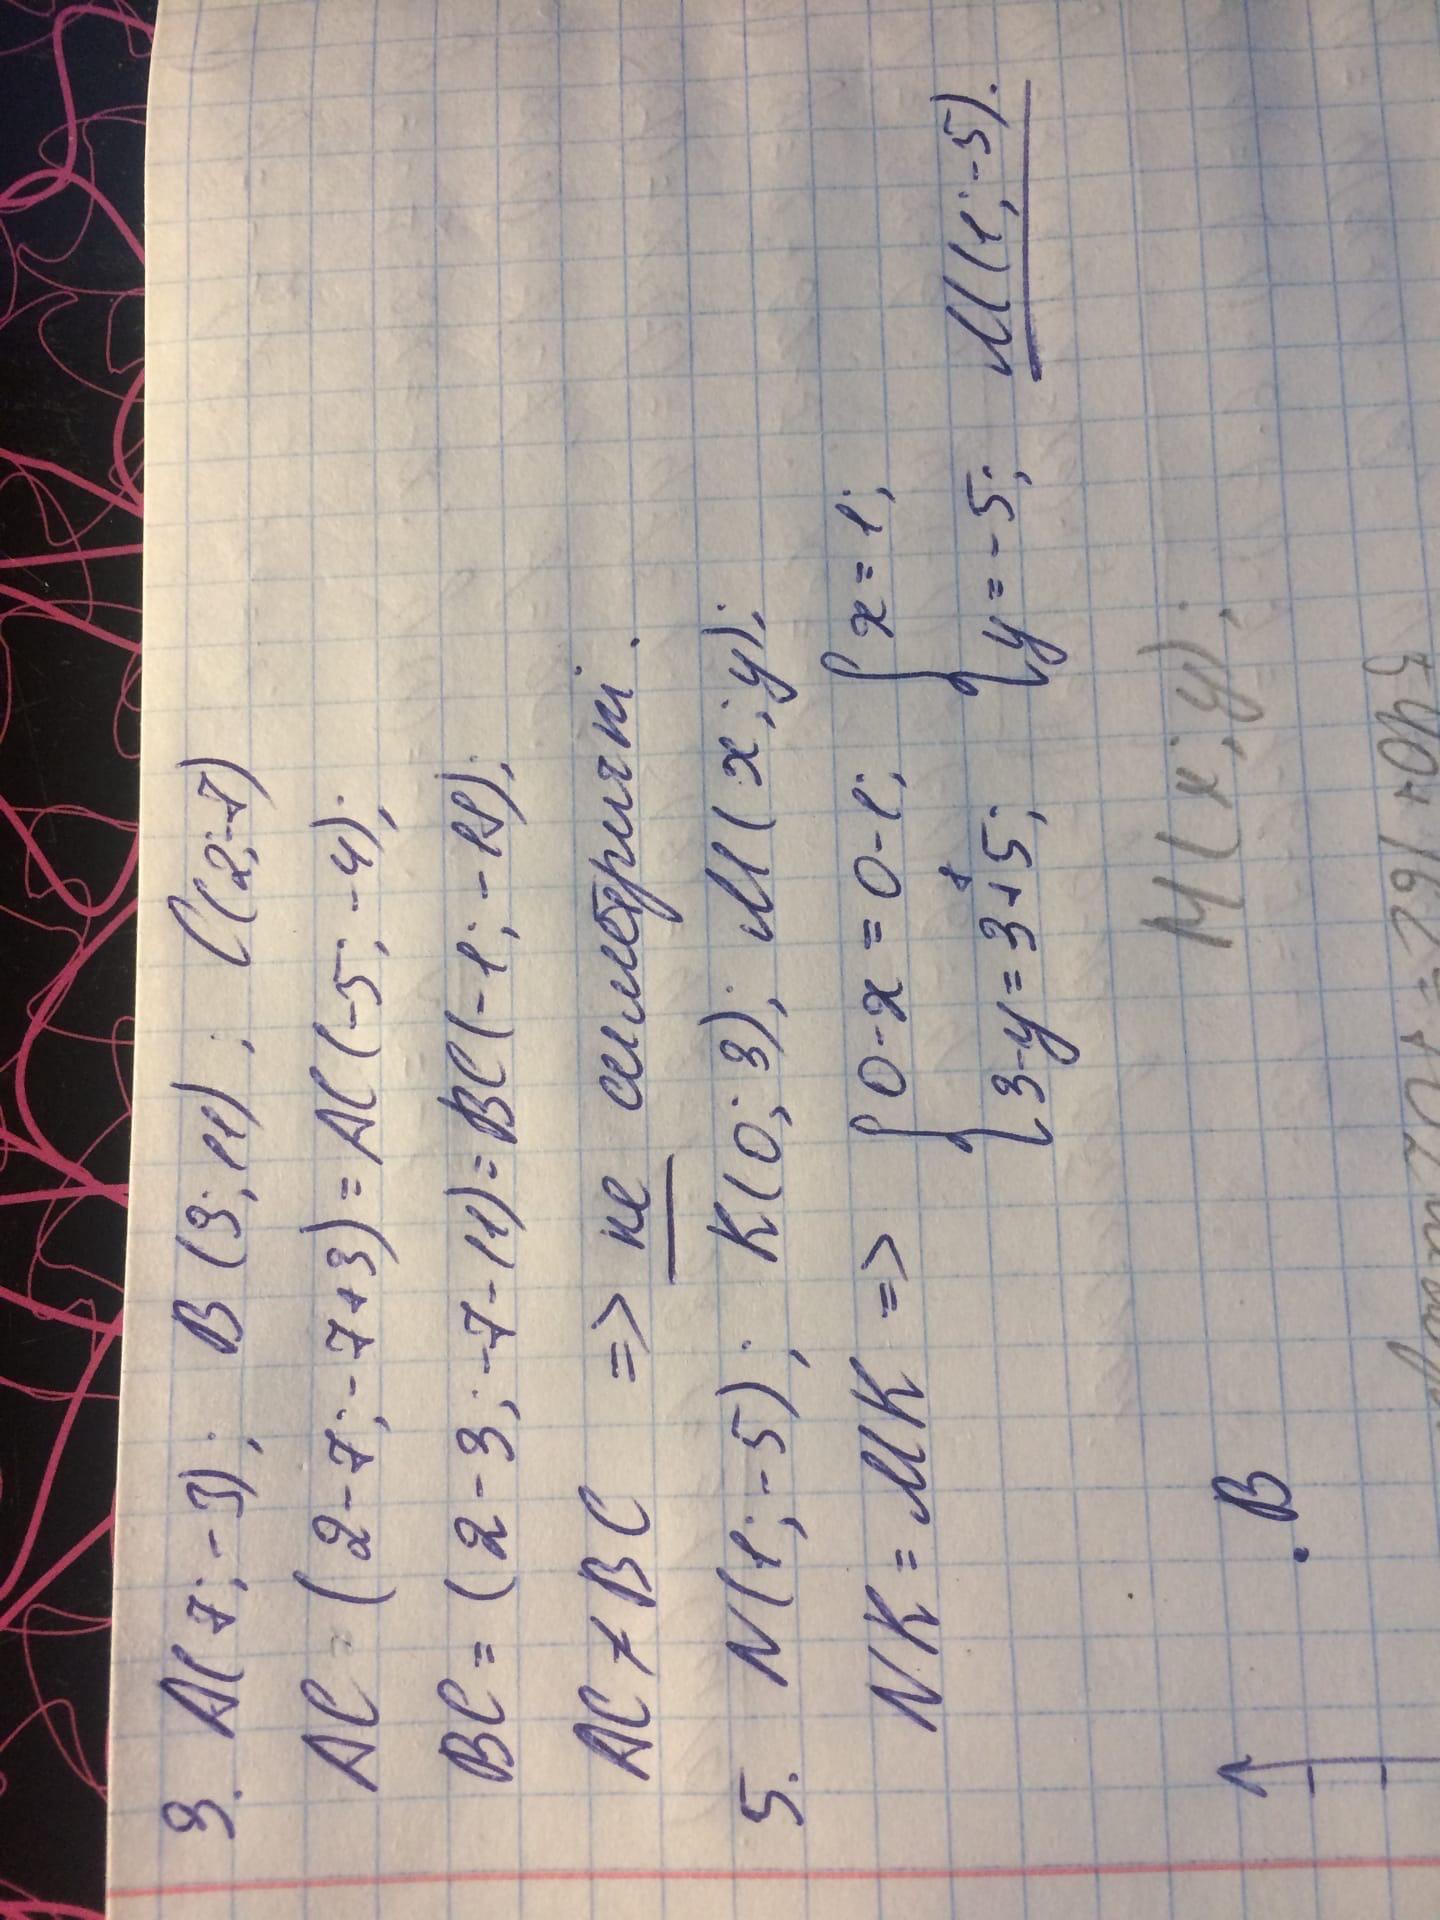 3. A(7; -3); B(3; 11); C(2; -7)
AC = (2-7; -7+3) = AC(-5; -4);
BC = (2-3; -7-11) = BC(-1; -18);
AC ≠ BC => не симетричні.
5. N(1; -5); K(0; 3); M(x; y);
NK = MK => { 0-x = 0-1; { x = 1;
{ 3-y = 3+5; { y = -5; M(1; -5).
M(x; y);
B